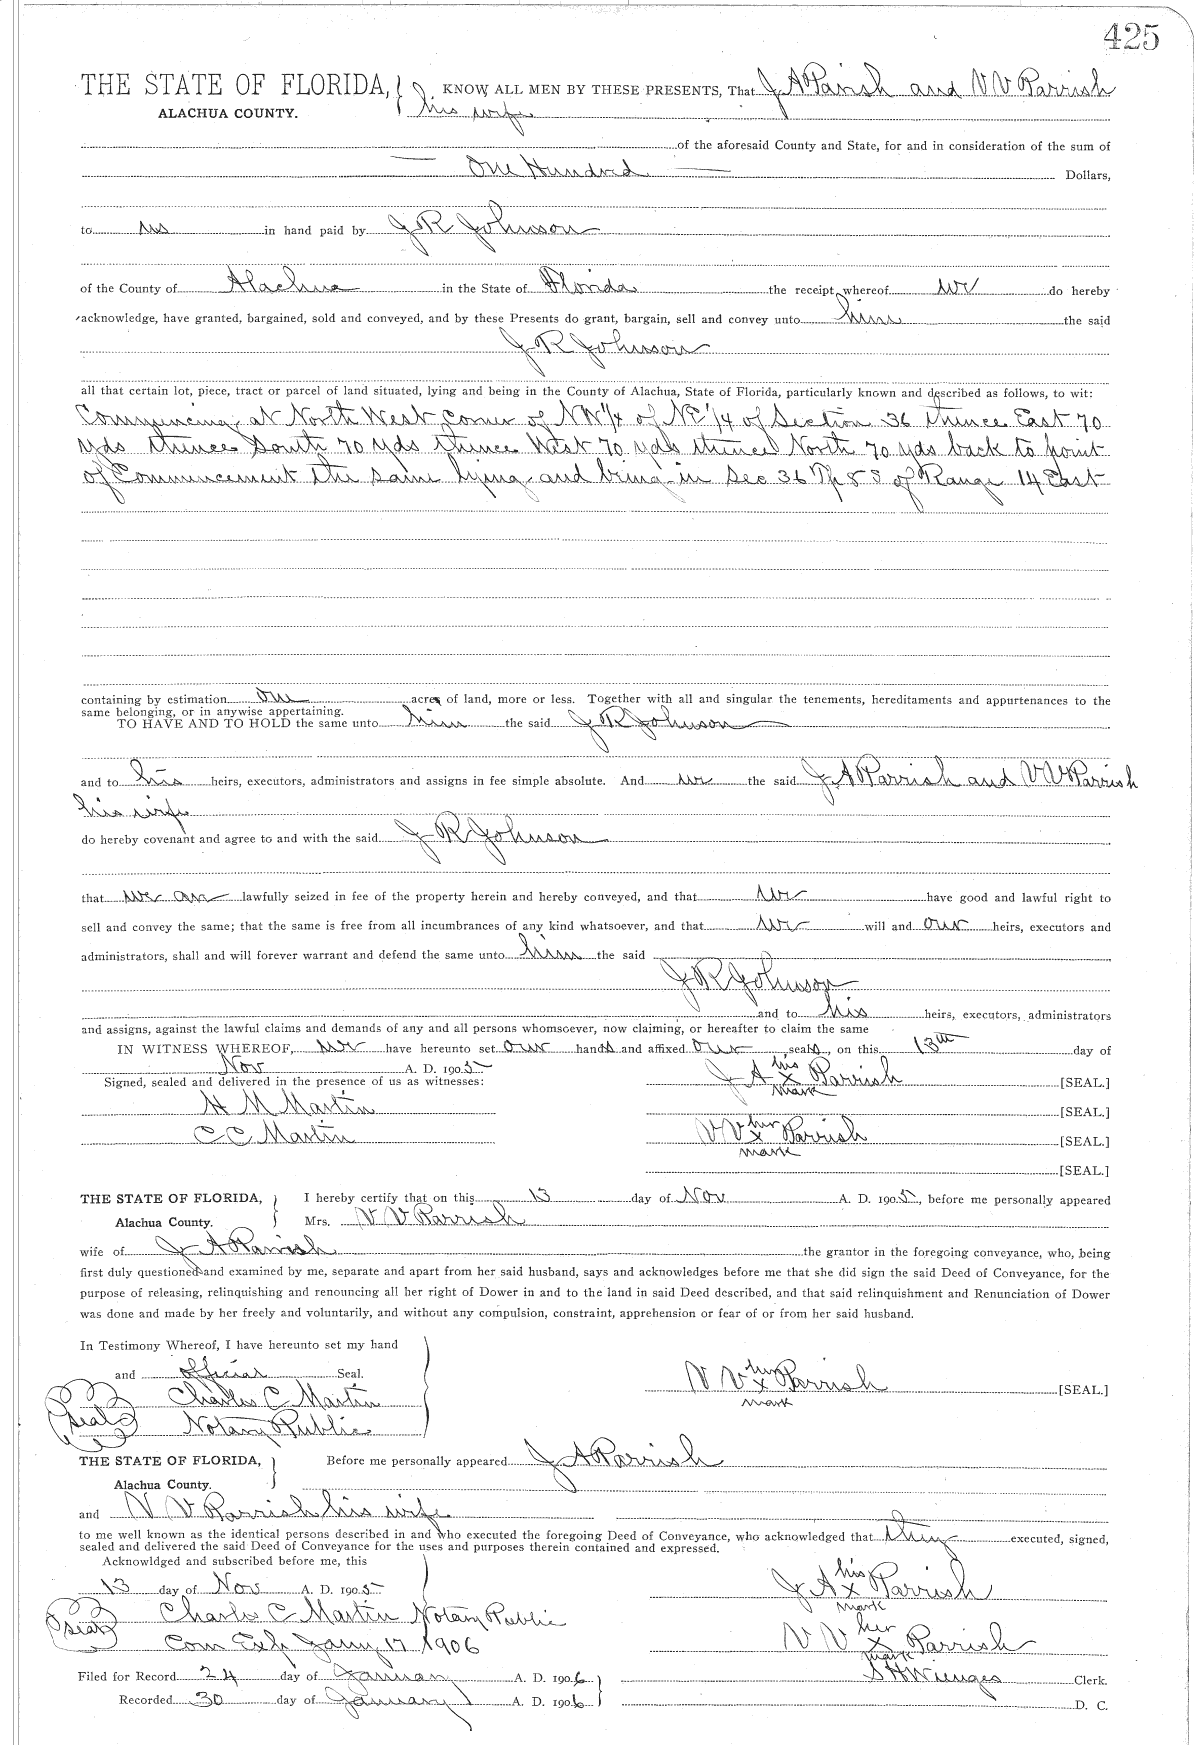 425
THE STATE OF FLORIDA, KNOW ALL MEN BY THESE PRESENTS, That J A Parrish and V V Parrish
ALACHUA COUNTY. his wife
of the aforesaid County and State, for and in consideration of the sum of
— One Hundred — Dollars,
to us in hand paid by J R Johnson
of the County of Alachua in the State of Florida the receipt whereof we do hereby
acknowledge, have granted, bargained, sold and conveyed, and by these Presents do grant, bargain, sell and convey unto him the said
J R Johnson
all that certain lot, piece, tract or parcel of land situated, lying and being in the County of Alachua, State of Florida, particularly known and described as follows, to wit:
Commencing at North West corner of NW 1/4 of NE 1/4 of Section 36 thence East 70
yds thence South 70 yds thence West 70 yds thence North 70 yds back to point
of Commencement the same lying and being in Sec 36 Tp 8 S of Range 14 East
containing by estimation one acres of land, more or less. Together with all and singular the tenements, hereditaments and appurtenances to the
same belonging, or in anywise appertaining.
TO HAVE AND TO HOLD the same unto him the said J R Johnson
and to his heirs, executors, administrators and assigns in fee simple absolute. And we the said J A Parrish and V V Parrish
his wife
do hereby covenant and agree to and with the said J R Johnson
that we are lawfully seized in fee of the property herein and hereby conveyed, and that we have good and lawful right to
sell and convey the same; that the same is free from all incumbrances of any kind whatsoever, and that we will and our heirs, executors and
administrators, shall and will forever warrant and defend the same unto him the said
J R Johnson
and to his heirs, executors, administrators
and assigns, against the lawful claims and demands of any and all persons whomsoever, now claiming, or hereafter to claim the same
IN WITNESS WHEREOF, we have hereunto set our hands and affixed our seals, on this 13th day of
Nov A. D. 1905 his
Signed, sealed and delivered in the presence of us as witnesses: J A x Parrish [SEAL.]
mark
H M Martin [SEAL.]
her
C C Martin V V x Parrish [SEAL.]
mark
[SEAL.]
THE STATE OF FLORIDA, I hereby certify that on this 13 day of Nov A. D. 1905, before me personally appeared
Alachua County. Mrs. V V Parrish
wife of J A Parrish the grantor in the foregoing conveyance, who, being
first duly questioned and examined by me, separate and apart from her said husband, says and acknowledges before me that she did sign the said Deed of Conveyance, for the
purpose of releasing, relinquishing and renouncing all her right of Dower in and to the land in said Deed described, and that said relinquishment and Renunciation of Dower
was done and made by her freely and voluntarily, and without any compulsion, constraint, apprehension or fear of or from her said husband.
In Testimony Whereof, I have hereunto set my hand
her
and official Seal. V V x Parrish [SEAL.]
mark
Charles C Martin
Seal Notary Public
THE STATE OF FLORIDA, Before me personally appeared J A Parrish
Alachua County.
and V V Parrish his wife
to me well known as the identical persons described in and who executed the foregoing Deed of Conveyance, who acknowledged that they executed, signed,
sealed and delivered the said Deed of Conveyance for the uses and purposes therein contained and expressed.
Acknowldged and subscribed before me, this
his
13 day of Nov A. D. 1905 J A x Parrish
mark
Seal Charles C Martin Notary Public
her
Com Exp Jany 17 1906 V V x Parrish
mark
Filed for Record 24 day of January A. D. 1906 S H Wienges Clerk.
Recorded 30 day of January A. D. 1906 D. C.